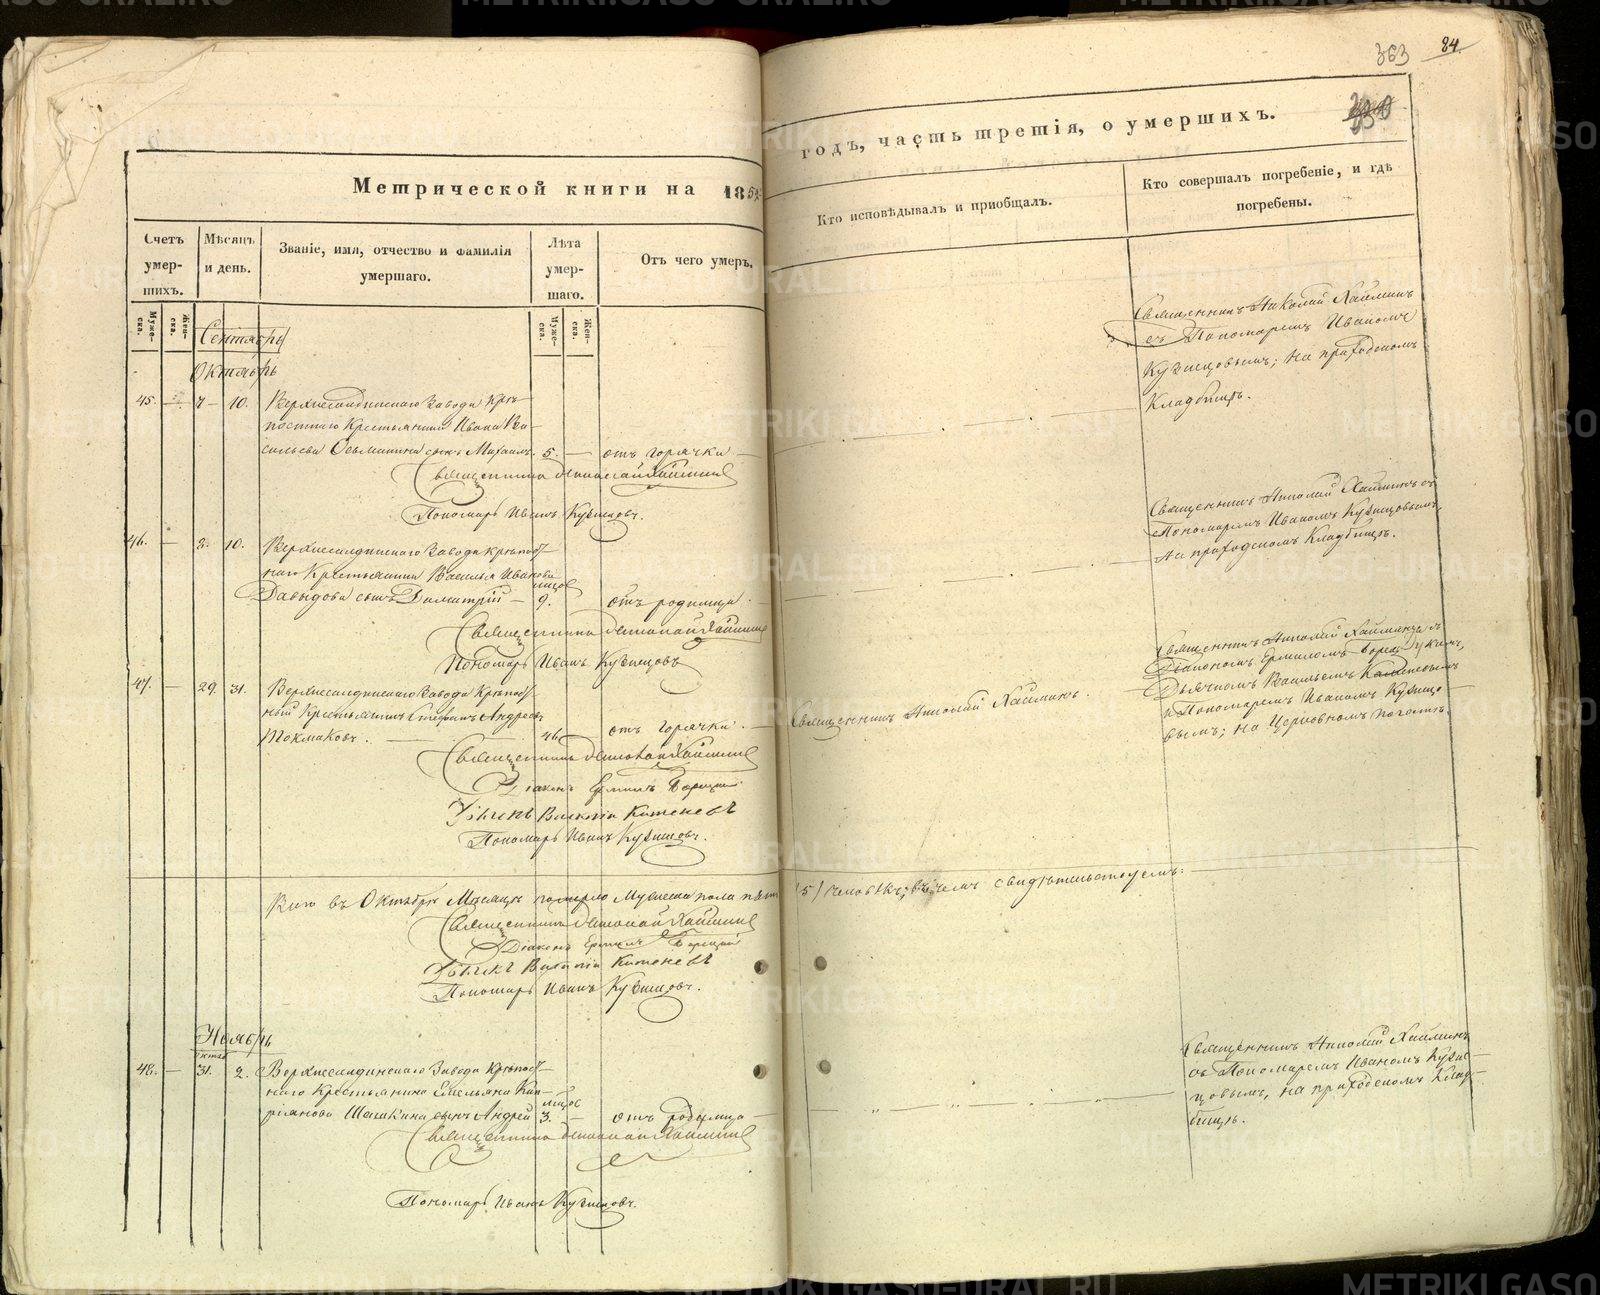 363 84.
Метрической книги на 185
годъ, часть третія, о умершихъ.
Счетъ умер-шихъ.
Муже-ска.
Жен-ска.
Мѣсяцъ и день.
Званіе, имя, отчество и фамилія умершаго.
Лѣта умер-шаго.
Муже-ска.
Жен-ска.
Отъ чего умеръ.
Кто исповѣдывалъ и пріобщалъ.
Кто совершалъ погребеніе, и гдѣ погребены.
Сентябрь
Октябрь
45. — 7 — 10. Верхнесалдинскаго Завода Крѣ-
постнаго Крестьянина Ивана Ва-
сильева сынъ Михаилъ. 5. — отъ горячки —
Священникъ Николай Хайминъ
Пономарь Иванъ Кузнецовъ.
Священникъ Николай Хайминъ
съ Пономаремъ Иваномъ
Кузнецовымъ; на приходскомъ
Кладбищѣ.
46. — 8. 10. Верхнесалдинскаго Завода Крѣпост-
наго Крестьянина Василья Иванова
Давыдова сынъ Димитрій — 9. отъ родимца —
Священникъ Николай Хайминъ
Пономарь Иванъ Кузнецовъ
Священникъ Николай Хайминъ съ
Пономаремъ Иваномъ Кузнецовымъ,
на приходскомъ Кладбищѣ.
47. — 29. 31. Верхнесалдинскаго Завода Крѣпост-
ный Крестьянинъ Стефанъ Андреевъ
Токмаковъ. — 46. отъ горячки. —
Священникъ Николай Хайминъ
Діаконъ Ермилъ
Дьячекъ Василій
Пономарь Иванъ Кузнецовъ.
Священникъ Николай Хайминъ.
Священникъ Николай Хайминъ съ
Діакономъ Ермиломъ
Дьячкомъ Васильемъ
и Пономаремъ Иваномъ Кузнецо-
вымъ; на Церковномъ погостѣ.
Всего въ Октябрѣ Мѣсяцѣ померло Мужеска пола пять (5) человѣкъ; въ чемъ свидѣтельствуемъ:
Священникъ Николай Хайминъ
Діаконъ Ермилъ
Дьячекъ Василій
Пономарь Иванъ Кузнецовъ.
Ноябрь
48. — 31. 2. Верхнесалдинскаго Завода Крѣпост-
наго Крестьянина Емельяна Кип-
ріанова сынъ Андрей 3. — отъ родимца —
Священникъ Николай Хайминъ
Пономарь Иванъ Кузнецовъ.
Священникъ Николай Хайминъ
съ Пономаремъ Иваномъ Кузне-
цовымъ, на приходскомъ Клад-
бищѣ.
METRIKI.GASO-URAL.RU